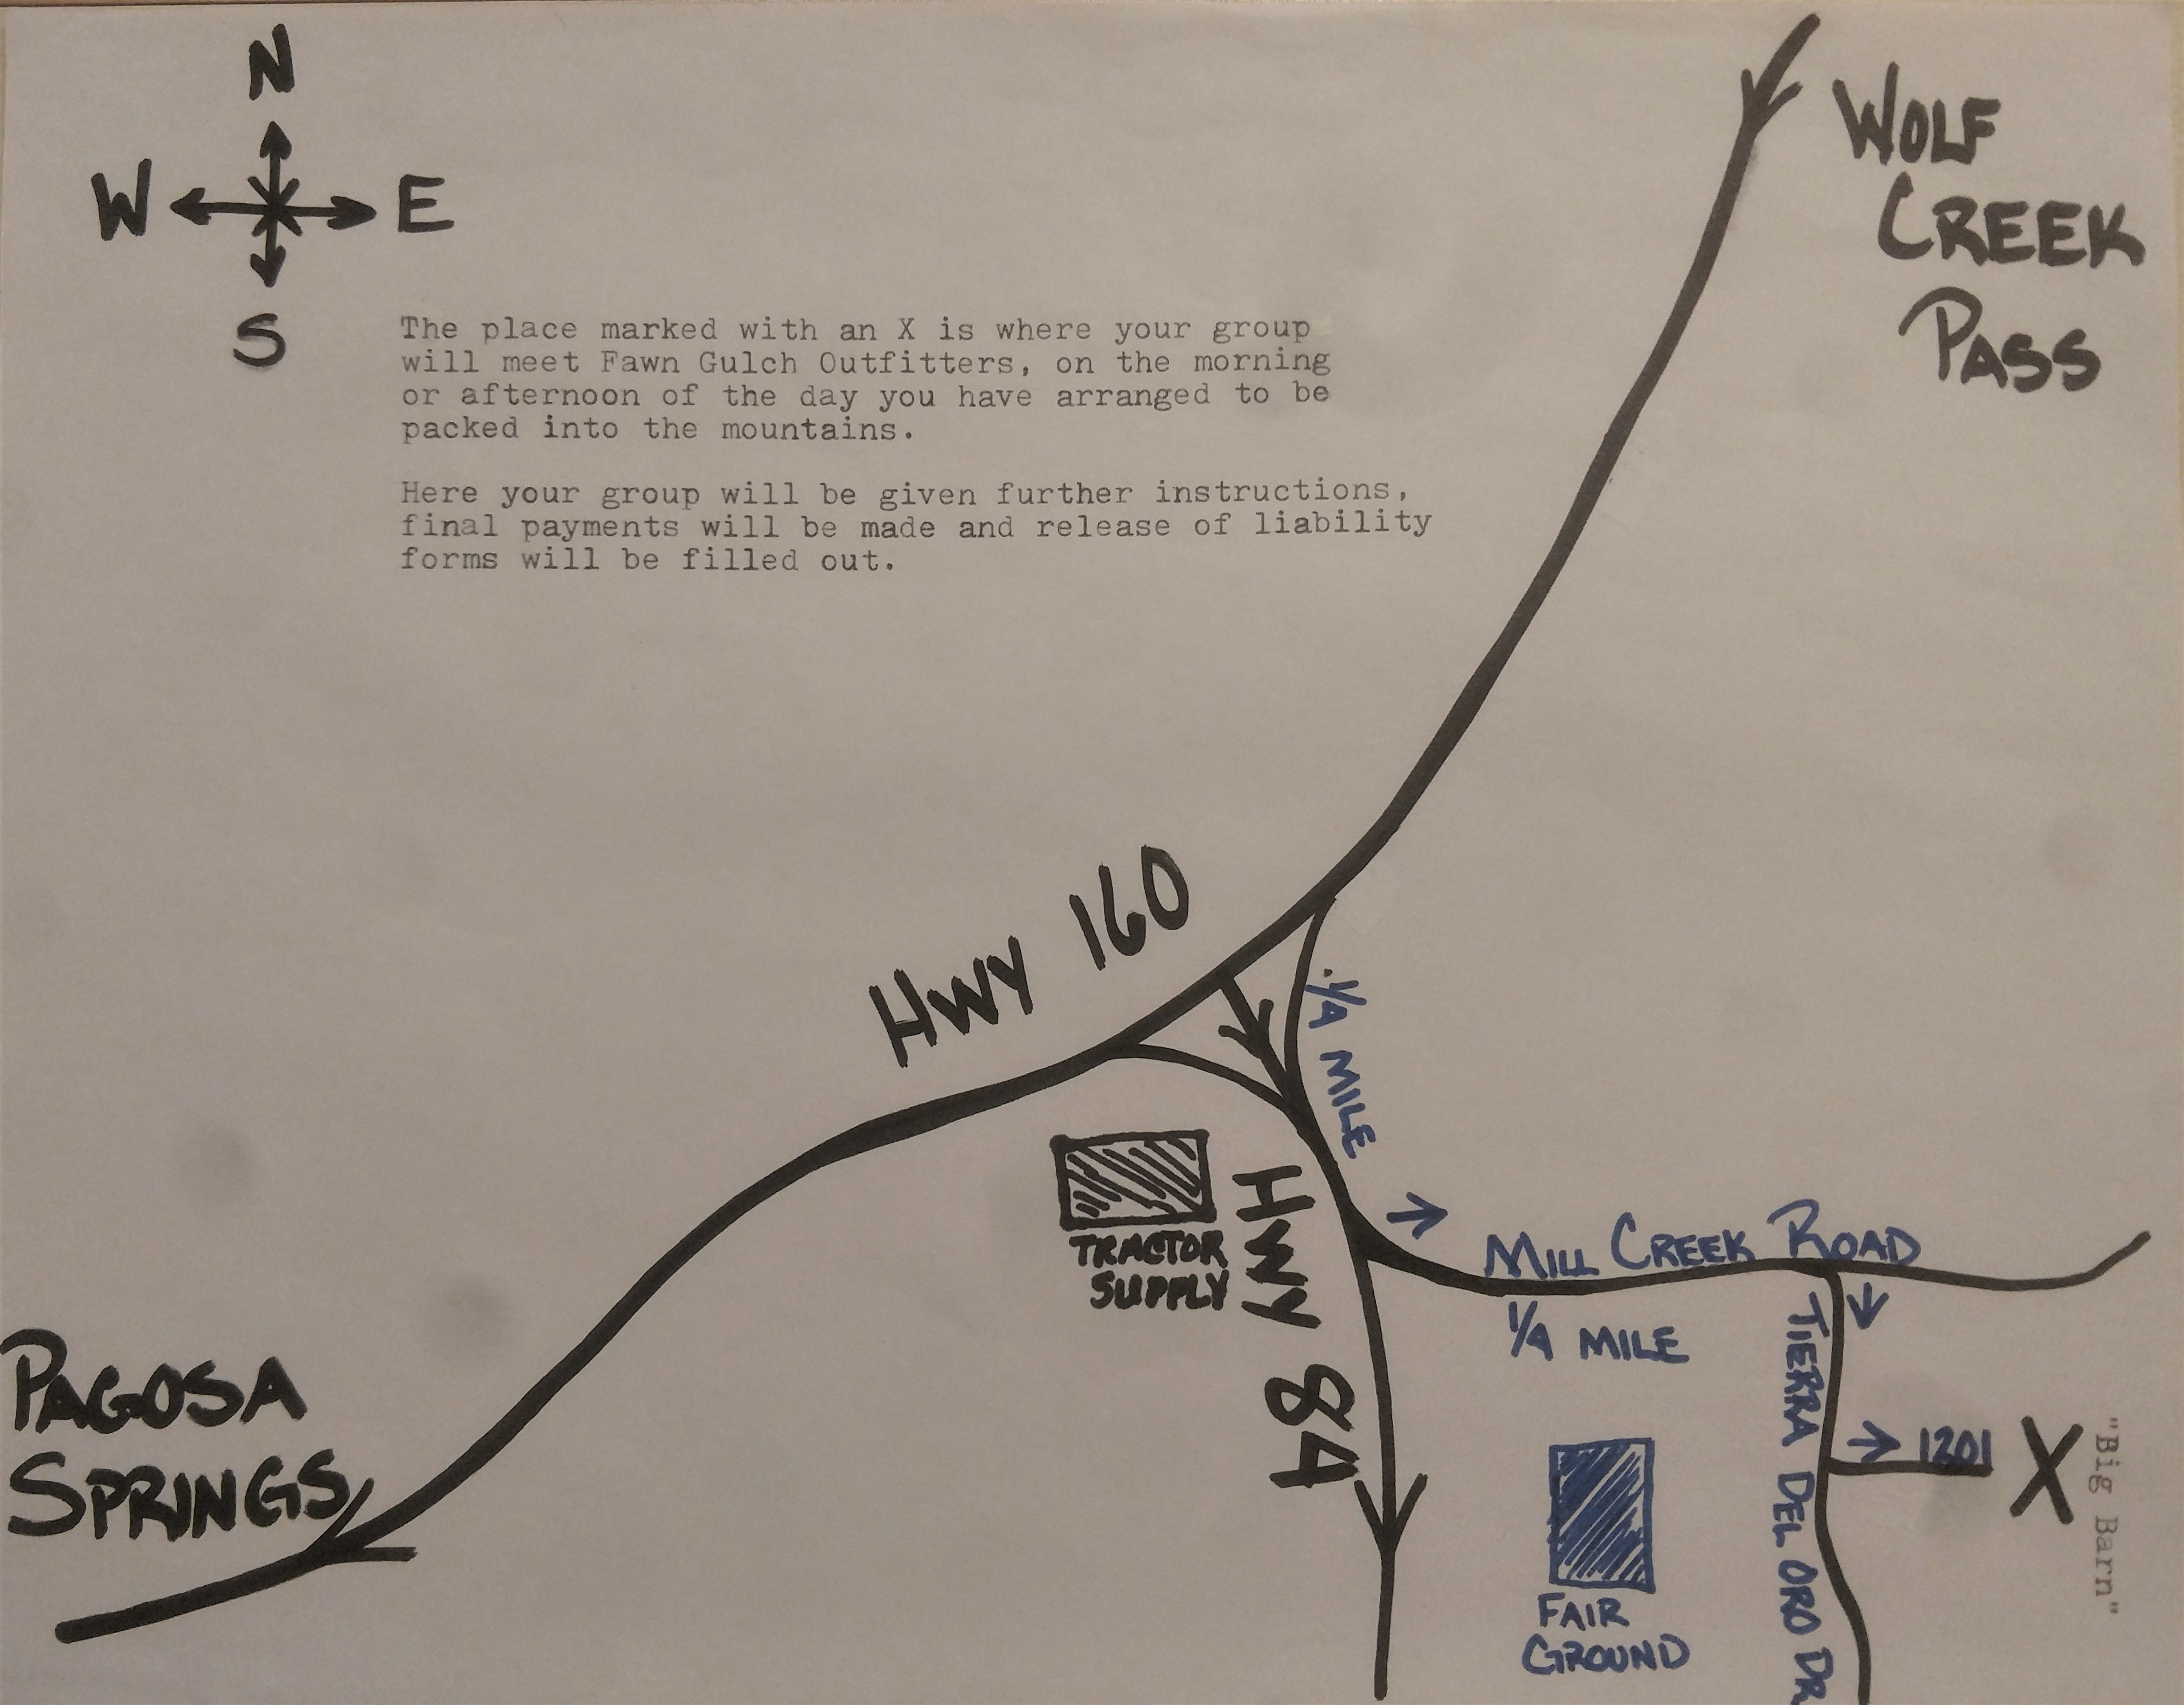 N
W E
S
WOLF
CREEK
PASS
The place marked with an X is where your group
will meet Fawn Gulch Outfitters, on the morning
or afternoon of the day you have arranged to be
packed into the mountains.
Here your group will be given further instructions,
final payments will be made and release of liability
forms will be filled out.
HWY 160
1/4 MILE
TRACTOR
SUPPLY
HWY 84
MILL CREEK ROAD
1/4 MILE
TIERRA DEL ORO DR
PAGOSA
SPRINGS
1201
X
"Big Barn"
FAIR
GROUND